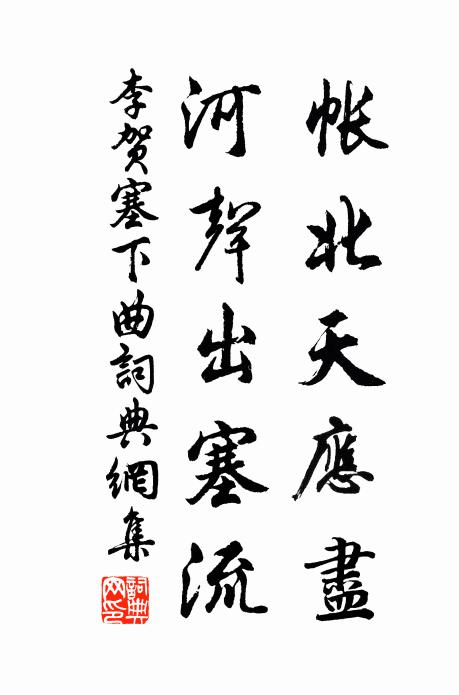 帐北天應盡
河聲出塞流
李贺塞下曲詞典網集
詞典网印